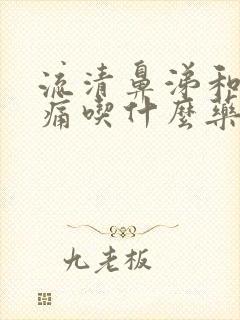 流清鼻涕和
痛喫什麽藥
九老板